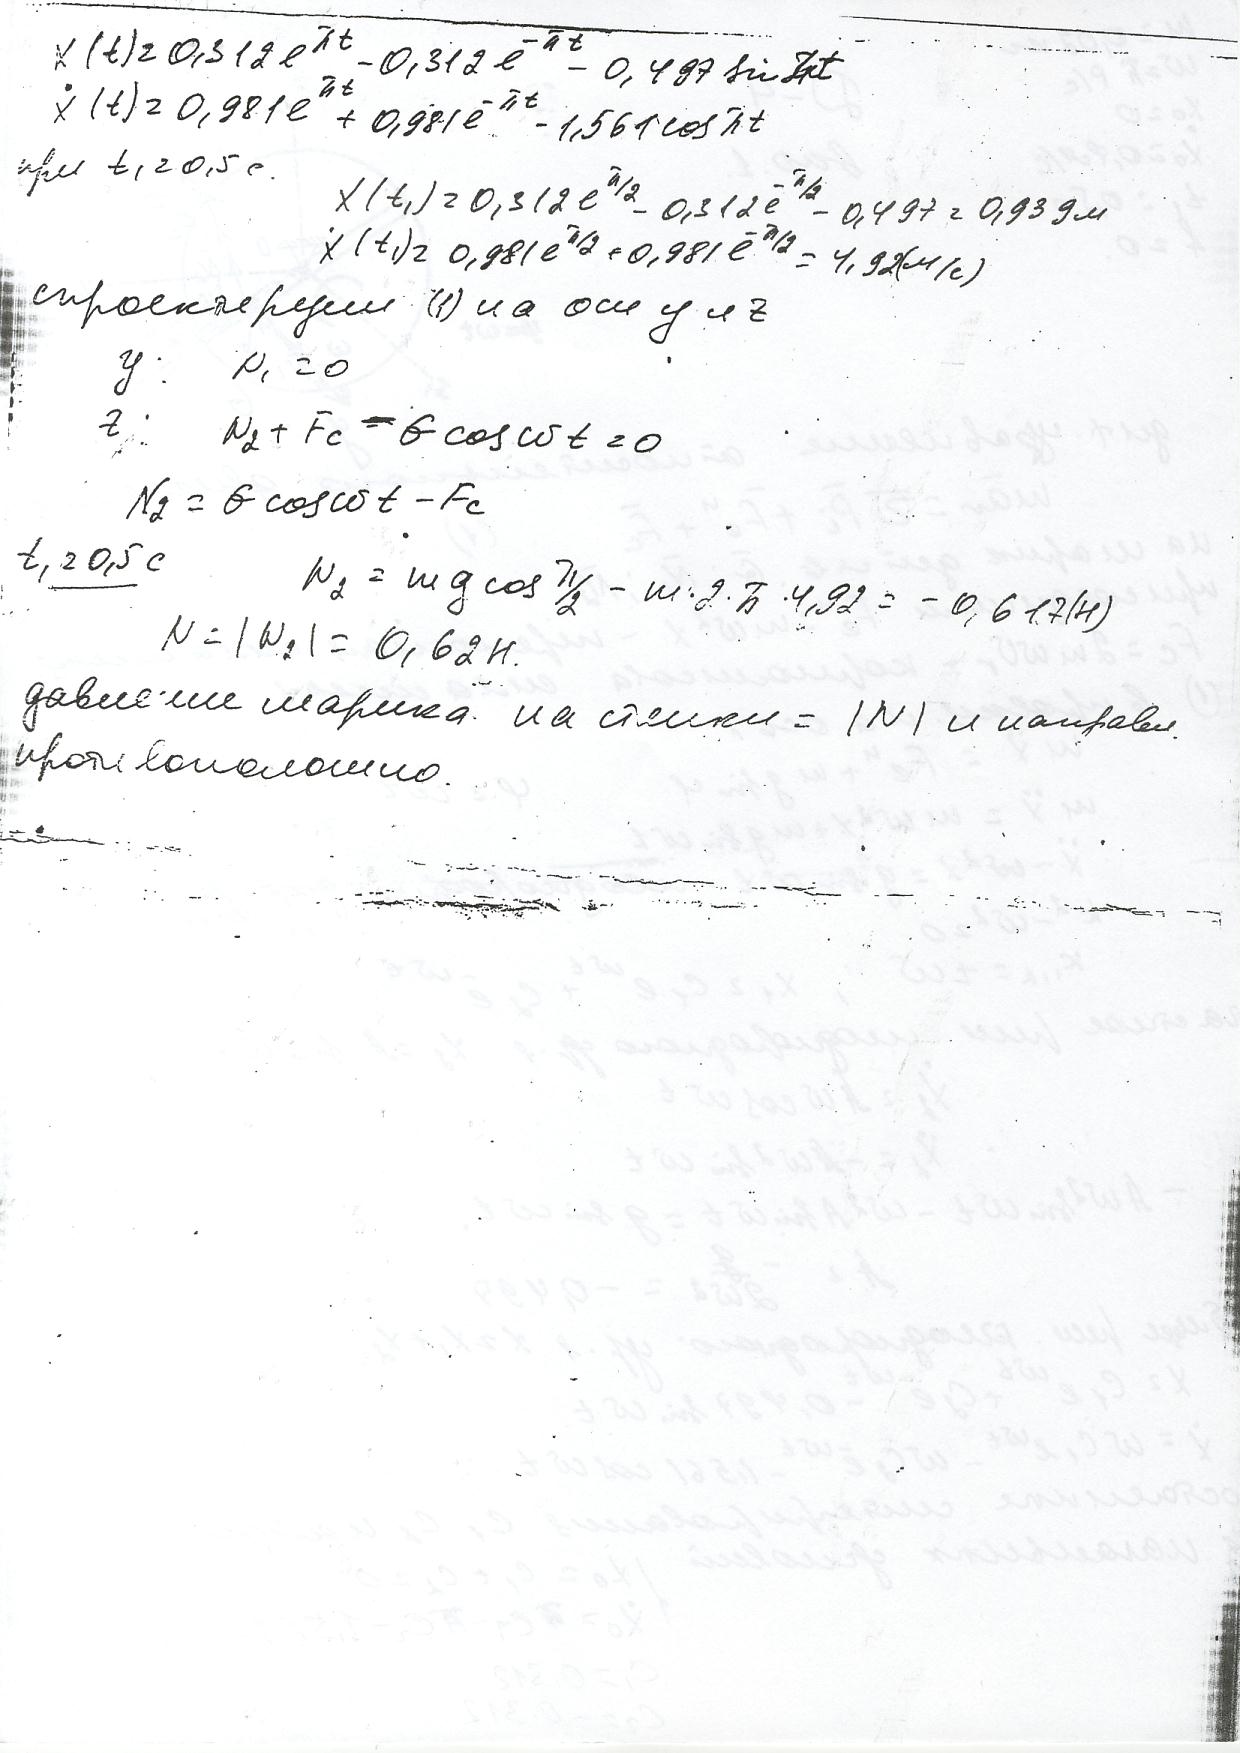 x(t)=0,312e^πt - 0,312e^-πt - 0,497 sin πt
ẋ(t)=0,981e^πt + 0,981e^-πt - 1,561 cos πt
при t₁=0,5 с.
x(t₁)=0,312e^π/2 - 0,312e^-π/2 - 0,497=0,939м
ẋ(t₁)= 0,981e^π/2 + 0,981e^-π/2 = 4,92(м/с)
спроектируем (1) на оси y и z
y: N₁ = 0
z: N₂ + Fc - G cos ωt = 0
N₂ = G cos ωt - Fc
t₁=0,5 с
N₂ = mg cos π/2 - m·2·π·4,92 = -0,617(Н)
N = |N₂| = 0,62 Н.
давление шарика на стенки = |N| и направл.
противоположно.